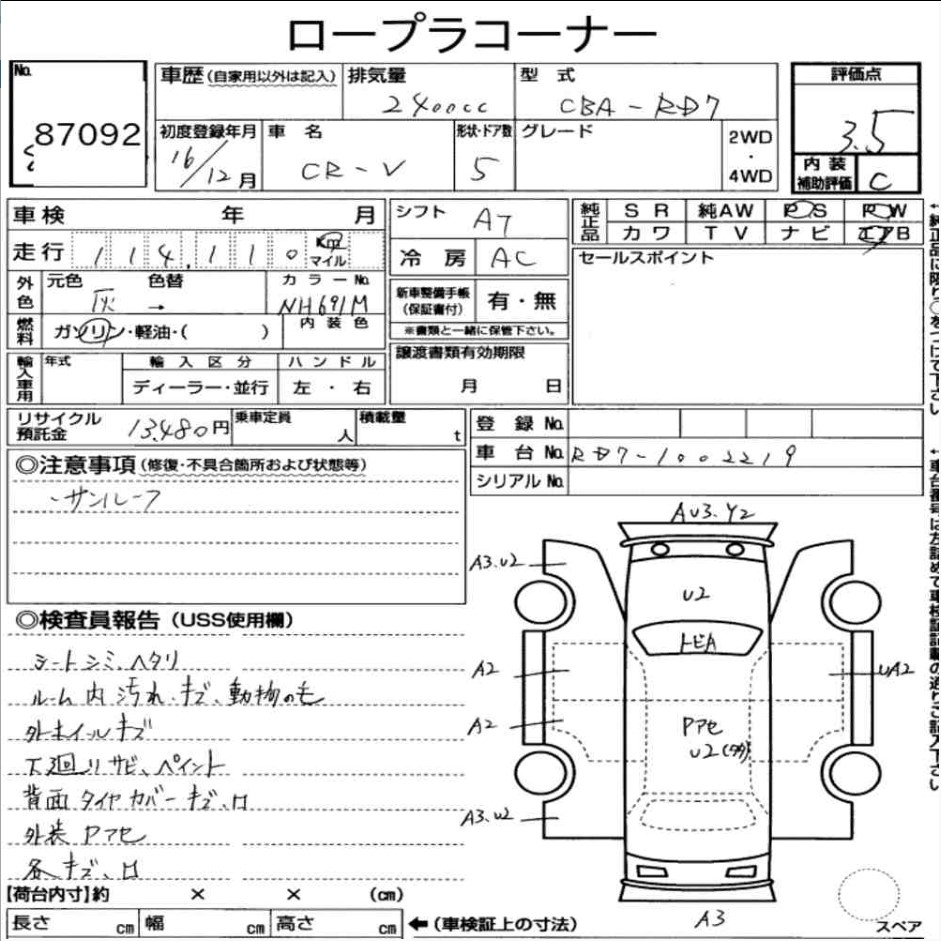 ロープラコーナー
No.
87092
車歴(自家用以外は記入)
排気量
2400cc
型式
CBA-RD7
評価点
3.5
初度登録年月
16/12月
車名
CR-V
形状・ドア数
5
グレード
2WD
・
4WD
内装
補助評価
C
車検 年 月
シフト
AT
純正品
SR 純AW PS PW
カワ TV ナビ エアB
走行
114,110
Km
マイル
冷房
AC
セールスポイント
外色
元色 色替
灰 →
カラーNo.
NH691M
新車整備手帳
(保証書付)
有・無
※書類と一緒に保管下さい。
燃料
ガソリン・軽油・( )
内装色
譲渡書類有効期限
月 日
輸入車用
年式
輸入区分
ディーラー・並行
ハンドル
左・右
リサイクル
預託金
13,480円
乗車定員
人
積載量
t
登録No.
車台No.
RD7-1002219
シリアルNo.
◎注意事項(修復・不具合箇所および状態等)
・サンルーフ
◎検査員報告(USS使用欄)
シートシミ、ヘタリ
ルーム内汚れ・キズ、動物の毛
外ホイルキズ
下廻りサビ、ペイント
背面タイヤカバーキズ、凹
外装Pアセ
各キズ、凹
AU3.Y2
A3.U2
U2
トビA
A2
UA2
A2
Pアセ
A3.U2
A3
スペア
【荷台内寸】約 × × (cm)
長さ cm 幅 cm 高さ cm
←(車検証上の寸法)
←純正品に限り○をつけて下さい
←車台番号は左詰めで車検証記載の通りご記入下さい